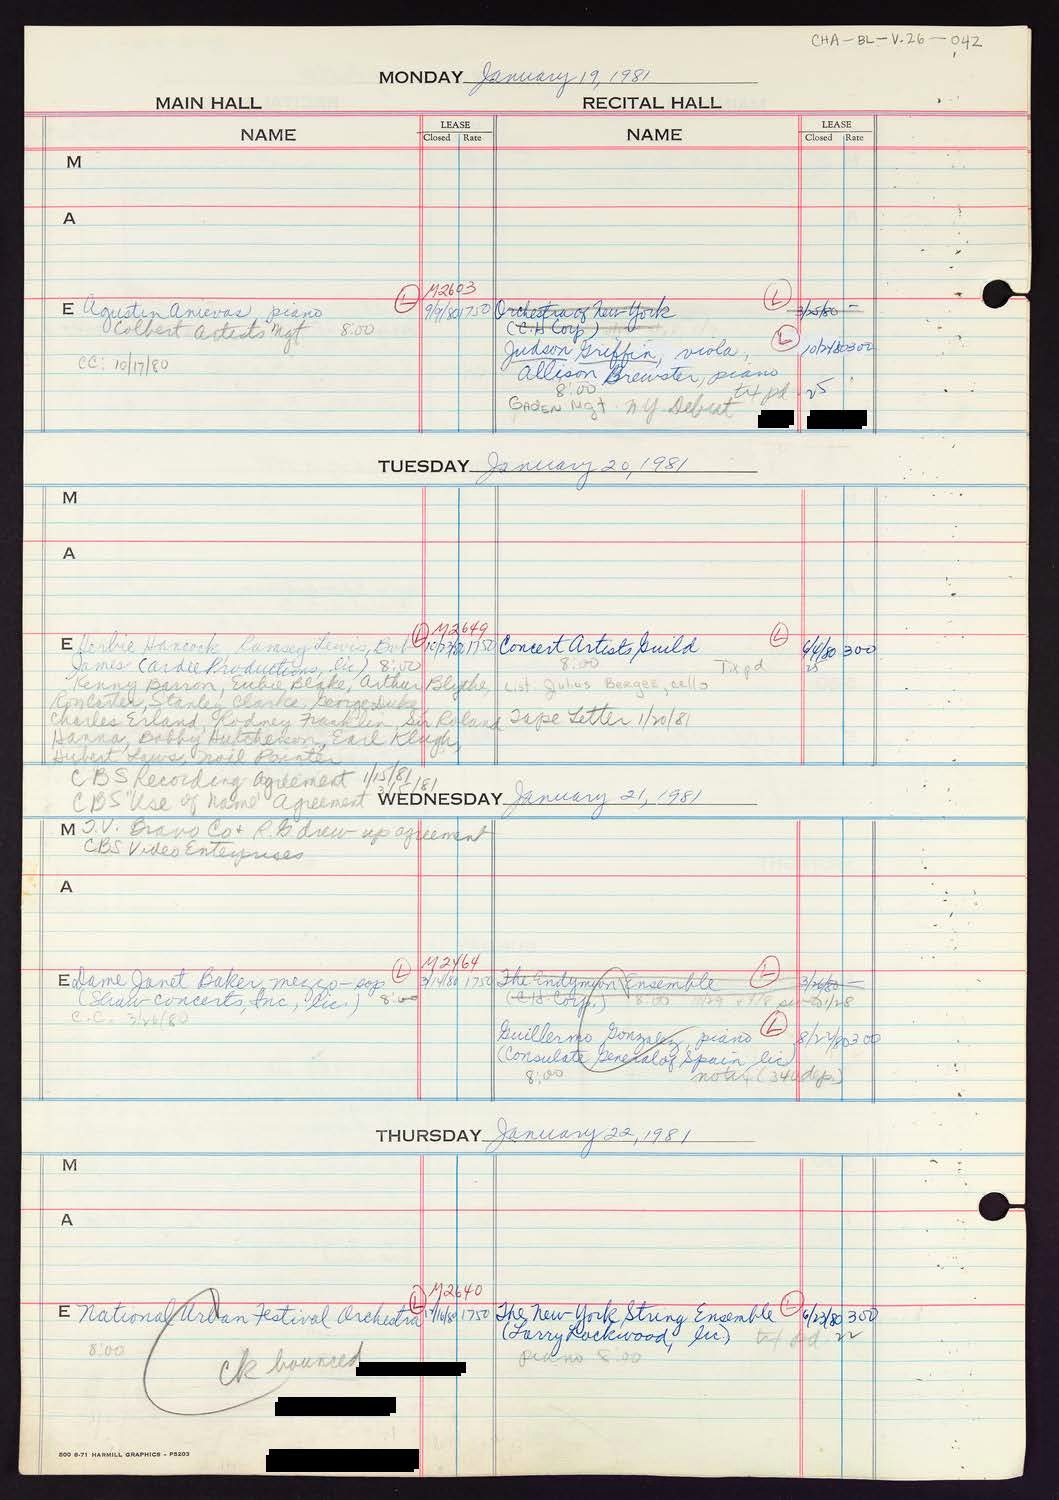 CHA-BL-V.26-042
MONDAY January 19, 1981
MAIN HALL RECITAL HALL
NAME LEASE Closed Rate NAME LEASE Closed Rate
M
A
M2603
E Agustin Anievas, piano L 9/9/80 1750
Colbert Artists Mgt 8:00
CC: 10/17/80
Orchestra of New York L 3/25/80 -
(C.H. Corp)
Judson Griffin, viola, L 10/21/80 300
Allison Brewster, piano
8:00 txt pd 25
Gaden Mgt. NY Debut
TUESDAY January 20, 1981
M
A
M2649
E Herbie Hancock, Ramsey Lewis, Bob L 10/23/80 1750
James (Ardee Productions, lic) 8:00
Kenny Barron, Eubie Blake, Arthur Blythe,
Ron Carter, Stanley Clarke, George Duke
Charles Erland, Rodney Franklin, Sir Roland
Hanna, Bobby Hutcherson, Earl Klugh,
Hubert Laws, Noel Pointer
CBS Recording agreement 1/15/81
CBS "Use of Name" Agreement
Concert Artists Guild L 6/4/80 300
8:00 Tix pd 25
List. Julius Berger, cello
Tape Letter 1/20/81
WEDNESDAY January 21, 1981
M T.V. Bravo Co + R.G drew up agreement
CBS Video Enterprises
A
M2464
E Dame Janet Baker, mezzo-sop L 3/14/80 1750
(Shaw Concerts, Inc., lic.) 8:00
C.C. 3/26/80
The Endymion Ensemble L 3/26/80 -
(C.H. Corp.) 8:00
Guillermo Gonzalez, piano L 8/27/80 300
(Consulate General of Spain lic)
8:00 notax (340 dep.)
THURSDAY January 22, 1981
M
A
M2640
E National Urban Festival Orchestra L 1750
8:00
ck bounced
The New York String Ensemble L 6/23/80 300
(Larry Lockwood, lic) txt pd 22
piano 8:00
500 6-71 HARMILL GRAPHICS - P5203